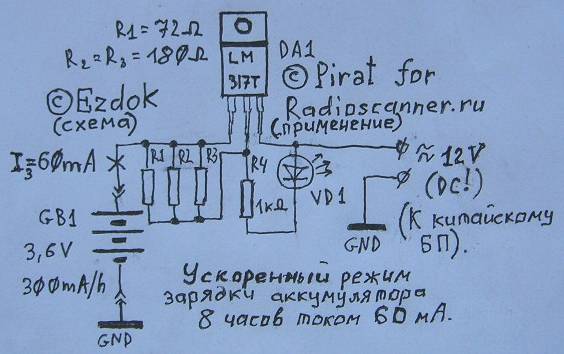 R1=72Ω
R2=R3=180Ω
LM
317T
DA1
© Pirat for
Radioscanner.ru
(применение)
© Ezdok
(схема)
Iз=60mA
R1 R2 R3
R4
1кΩ
VD1
≈ 12V
(DC!)
(К китайскому
БП).
GND
GB1
3,6V
300mA/h
GND
Ускоренный режим
зарядки аккумулятора
8 часов током 60 мА.